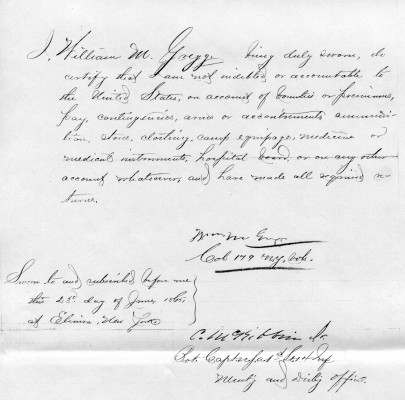 I, William M. Gregg being duly sworn, do
certify that I am not indebted or accountable to
the United States, on account of bounties or premiums,
pay, contingencies, arms or accoutrements ammuni-
tion, stores, clothing, camp equipage, medicine or
medical instruments, hospital board, or on any other
account whatsoever, and have made all required re-
turns.
Wm M Gregg
Col 179 NY. Vols.
Sworn to and subscribed before me
this 25th day of June 1865
at Elmira, New York
C. McKibbin Jr.
Bvt. Capt and 1st Lieut
Must'g and Disb'g officer.